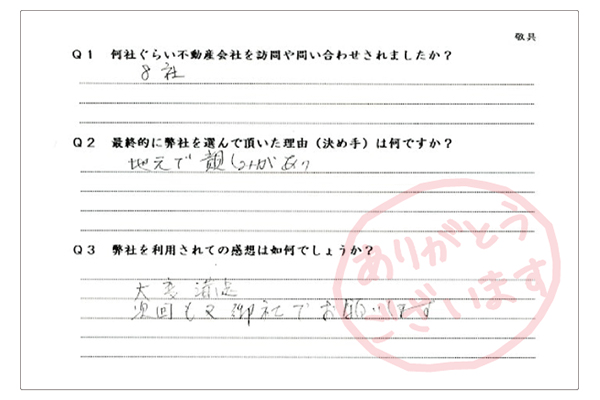 敬具
Q1 何社ぐらい不動産会社を訪問や問い合わせされましたか？
8社
Q2 最終的に弊社を選んで頂いた理由（決め手）は何ですか？
地元で親しみがあり
Q3 弊社を利用されての感想は如何でしょうか？
大変満足
次回も又御社でお願いします
ありがとう
ございます